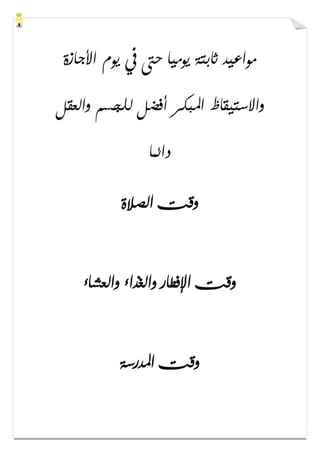 مواعيد ثابتة يوميا حتى في يوم الأجازة
والاستيقاظ المبكر أفضل للجسم والعقل
دائما
وقت الصلاة
وقت الإفطار والغذاء والعشاء
وقت المدرسة